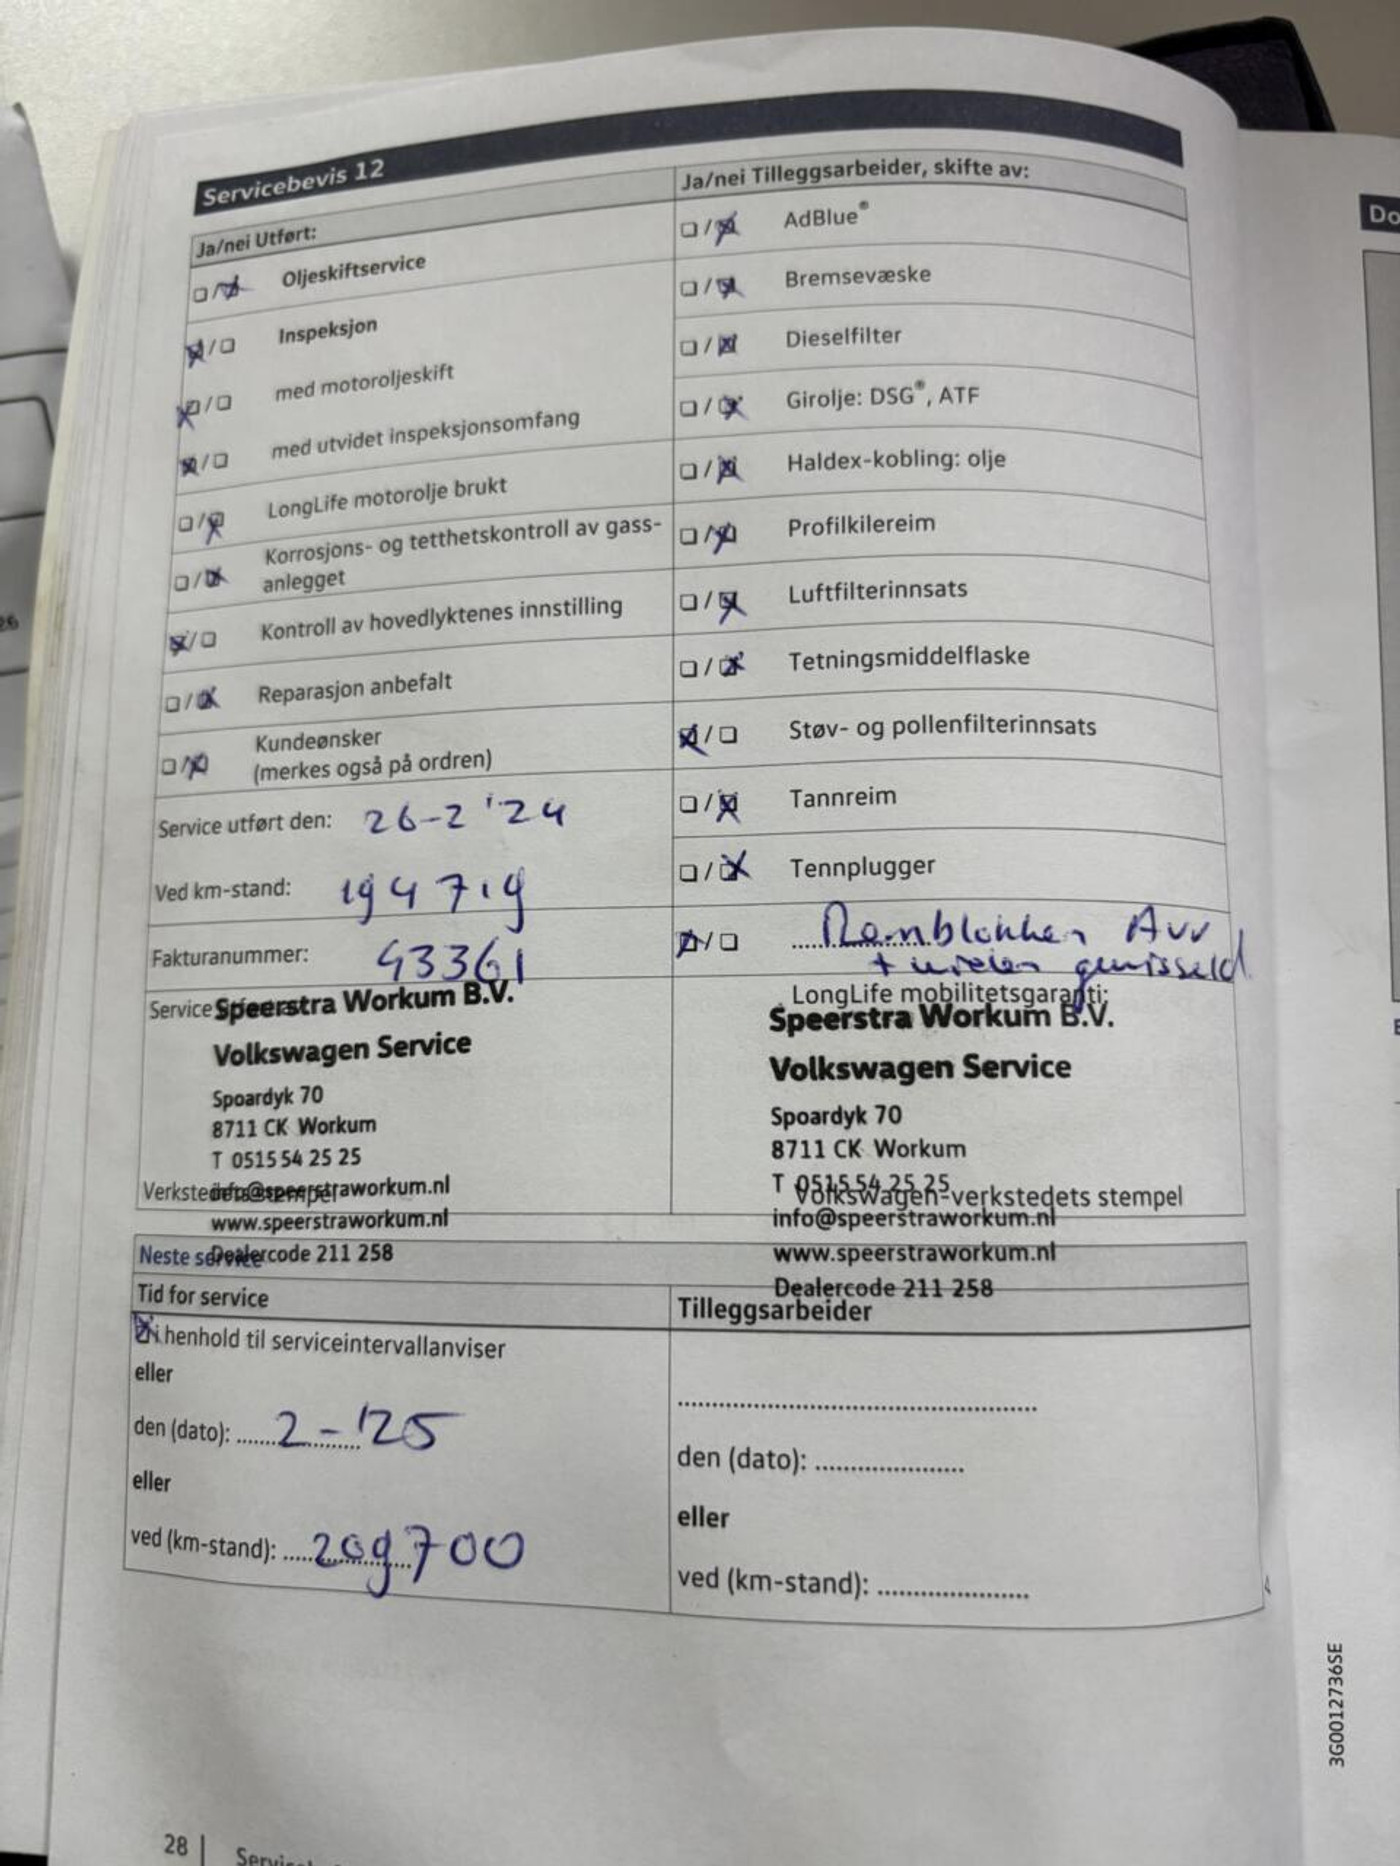 Servicebevis 12
Ja/nei Utført:
❏/❏ Oljeskiftservice
❏/❏ Inspeksjon
❏/❏ med motoroljeskift
❏/❏ med utvidet inspeksjonsomfang
❏/❏ LongLife motorolje brukt
❏/❏ Korrosjons- og tetthetskontroll av gass-
anlegget
❏/❏ Kontroll av hovedlyktenes innstilling
❏/❏ Reparasjon anbefalt
❏/❏ Kundeønsker
(merkes også på ordren)
Service utført den: 26-2 '24
Ved km-stand: 194719
Fakturanummer: 43361
Service
Speerstra Workum B.V.
Volkswagen Service
Spoardyk 70
8711 CK Workum
T 0515 54 25 25
info@speerstraworkum.nl
www.speerstraworkum.nl
Dealercode 211 258
Ja/nei Tilleggsarbeider, skifte av:
❏/❏ AdBlue®
❏/❏ Bremsevæske
❏/❏ Dieselfilter
❏/❏ Girolje: DSG®, ATF
❏/❏ Haldex-kobling: olje
❏/❏ Profilkilereim
❏/❏ Luftfilterinnsats
❏/❏ Tetningsmiddelflaske
❏/❏ Støv- og pollenfilterinnsats
❏/❏ Tannreim
❏/❏ Tennplugger
❏/❏ Remblokken
+ wielen gewisseld
LongLife mobilitetsgaranti:
Speerstra Workum B.V.
Volkswagen Service
Spoardyk 70
8711 CK Workum
T 0515 54 25 25
Volkswagen-verkstedets stempel
info@speerstraworkum.nl
www.speerstraworkum.nl
Dealercode 211 258
Neste service
Tid for service
i henhold til serviceintervallanviser
eller
den (dato): 2-'25
eller
ved (km-stand): 209700
Tilleggsarbeider
den (dato): ....................
eller
ved (km-stand): ....................
3G0012736SE
28
Do
26